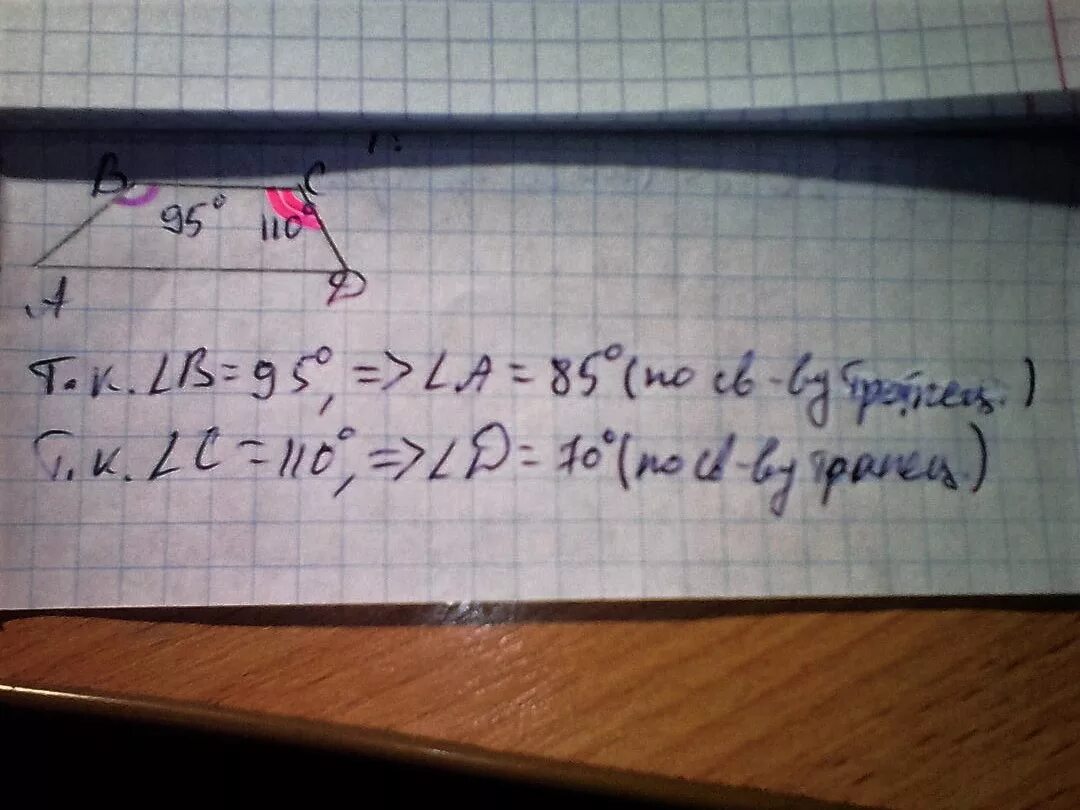 B C
95° 110°
A D
Т.к. ∠B = 95°, => ∠A = 85° (по св-ву трапец.)
Т.к. ∠C = 110°, => ∠D = 70° (по св-ву трапец.)